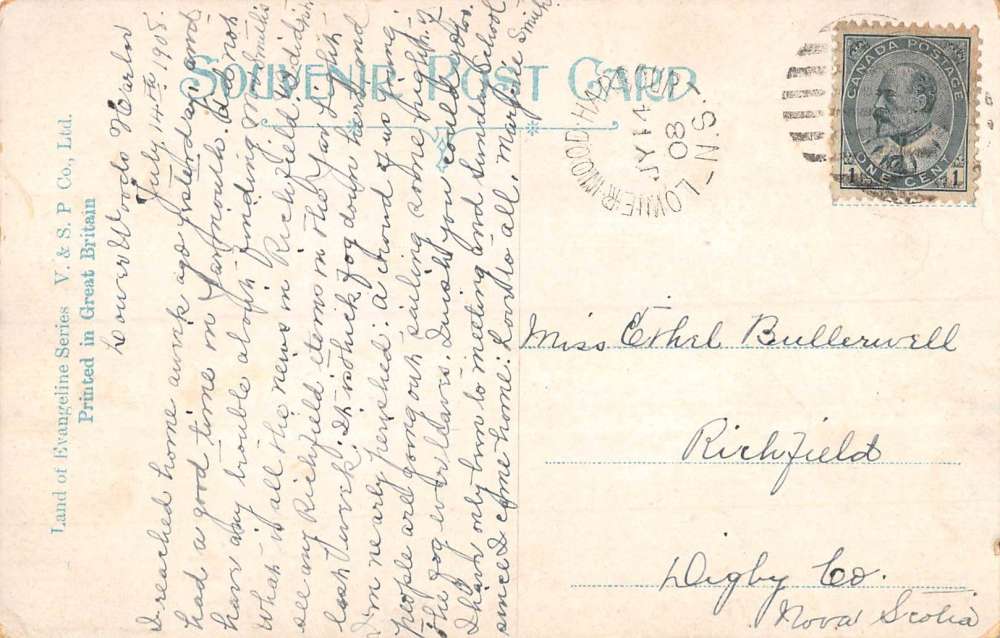 SOUVENIR POST CARD
Land of Evangeline Series V. & S. P Co., Ltd.
Printed in Great Britain
Lower Woods Harbor
July. 14th 1908.
I reached home a week ago yesterday and
had a good time in Yarmouth. Did not
have any trouble about finding Mr Smith
What is all the news in Richfield. I didn't
see any Richfield items in the Yar. Light
last week. It is thick fog down here and
I'm nearly perished. A crowd of us young
people are going out sailing some night if
the fog ever leaves. I wish you could go too.
I have only been to meeting and Sunday School
since I came home. Love to all. Margie Smith
LOWER WOOD HARBOUR
JY 14
08
N.S.
CANADA POSTAGE
1 ONE CENT 1
Miss Ethel Bullerwell
Richfield
Digby Co.
Nova Scotia